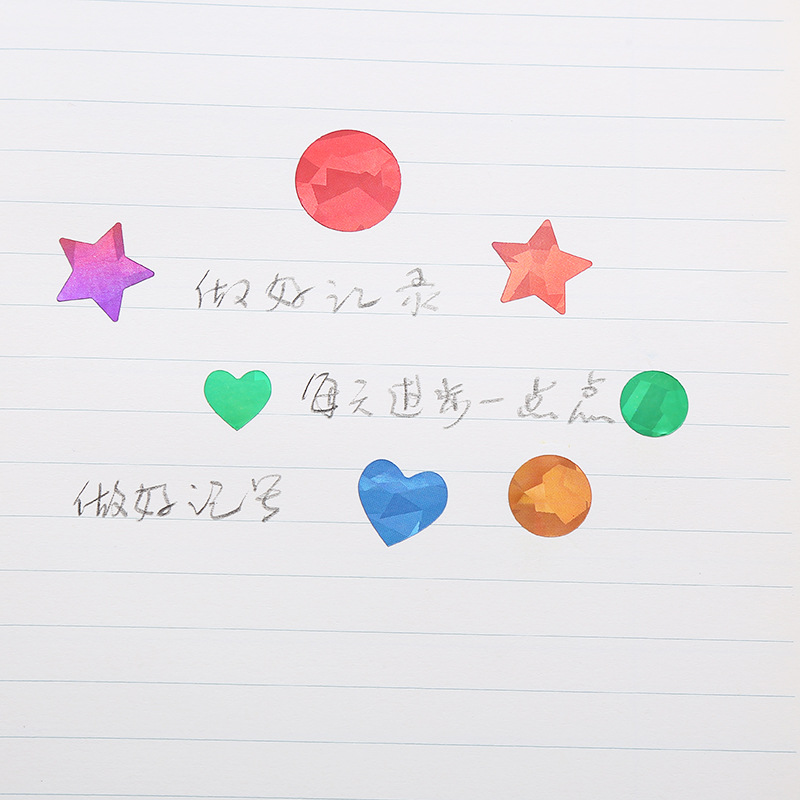 做好记录
每天进步一点点
做好记号